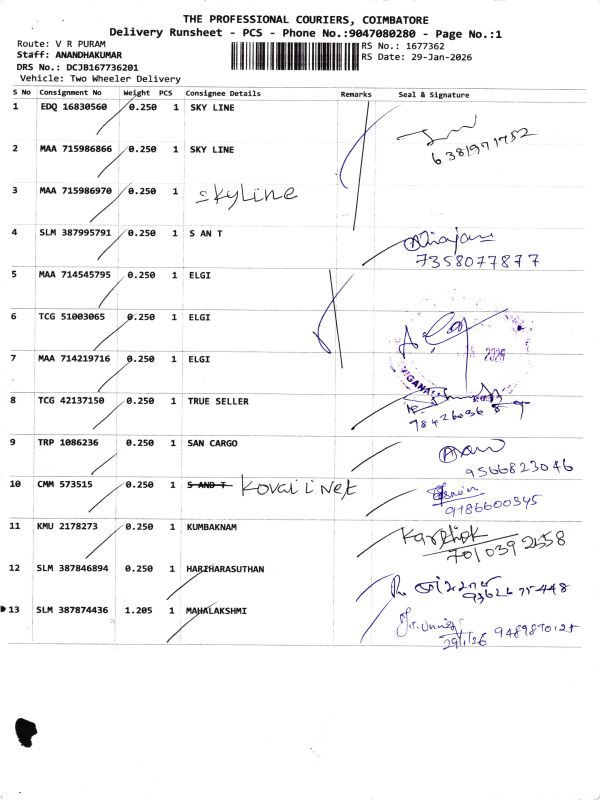 THE PROFESSIONAL COURIERS, COIMBATORE
Delivery Runsheet - PCS - Phone No.:9047080280 - Page No.:1
Route: V R PURAM
Staff: ANANDHAKUMAR
DRS No.: DCJB167736201
Vehicle: Two Wheeler Delivery
RS No.: 1677362
RS Date: 29-Jan-2026
S No Consignment No Weight PCS Consignee Details Remarks Seal & Signature
1 EDQ 16830560 0.250 1 SKY LINE
6381971752
2 MAA 715986866 0.250 1 SKY LINE
3 MAA 715986970 0.250 1 skyline
4 SLM 387995791 0.250 1 S AN T
7358077877
5 MAA 714545795 0.250 1 ELGI
6 TCG 51003065 0.250 1 ELGI
2026
7 MAA 714219716 0.250 1 ELGI
8 TCG 42137150 0.250 1 TRUE SELLER
9 TRP 1086236 0.250 1 SAN CARGO
9566823046
10 CMM 573515 0.250 1 S AND T Kovai i Net
9786600345
11 KMU 2178273 0.250 1 KUMBAKNAM
Karthik
12 SLM 387846894 0.250 1 HARIHARASUTHAN
93626 75448
13 SLM 387874436 1.205 1 MAHALAKSHMI
29/1/26